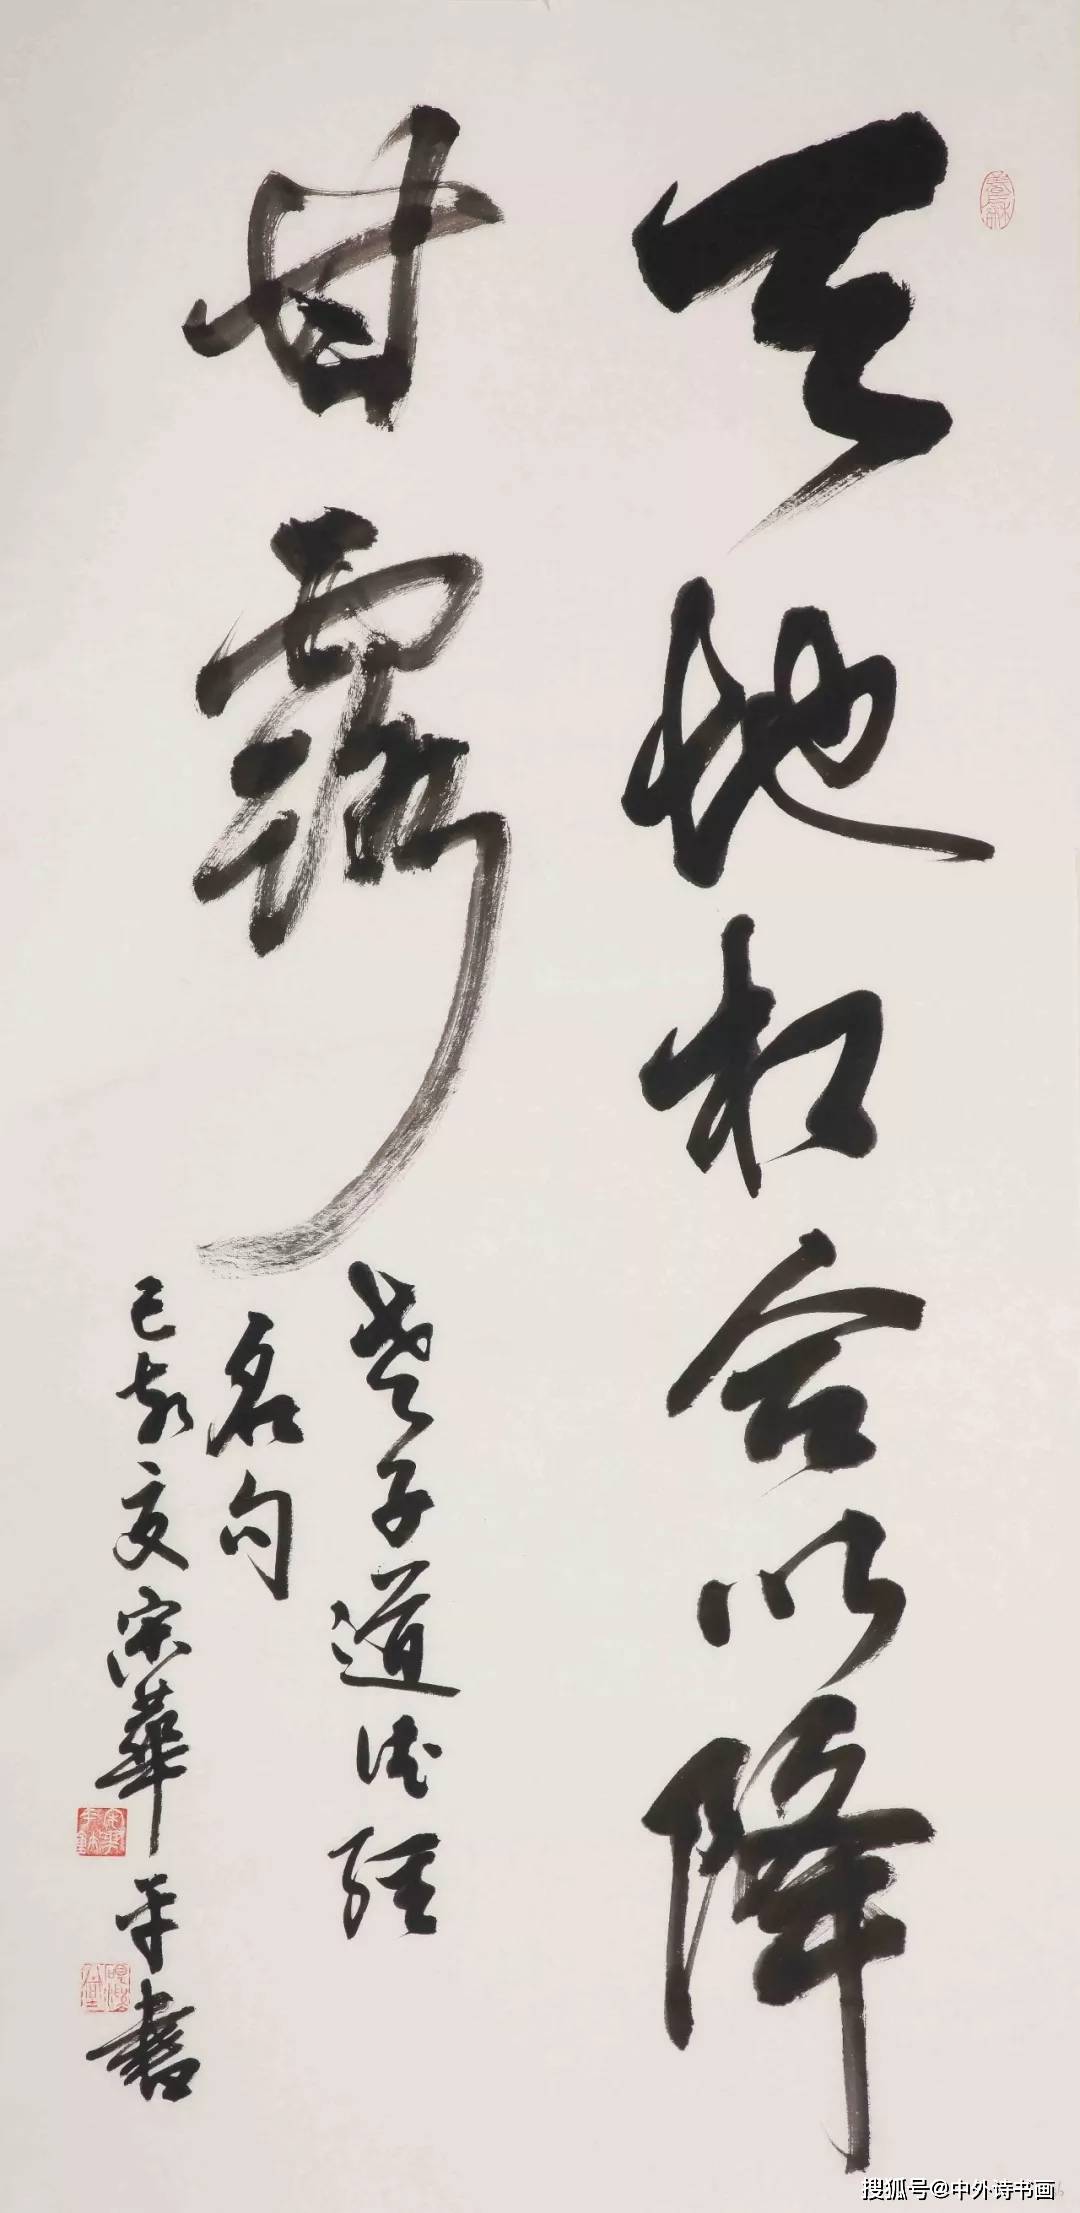 天地相合以降
甘露
老子道德经
名句
己亥夏宋華平書
搜狐号@中外诗书画